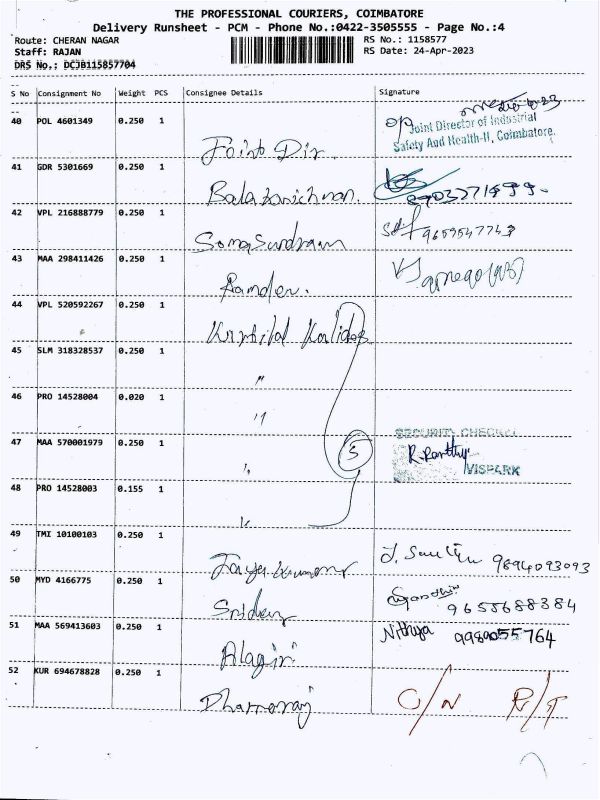 THE PROFESSIONAL COURIERS, COIMBATORE
Delivery Runsheet - PCM - Phone No.:0422-3505555 - Page No.:4
Route: CHERAN NAGAR RS No.: 1158577
Staff: RAJAN RS Date: 24-Apr-2023
DRS No.: DCJB115857704
S No Consignment No Weight PCS Consignee Details Signature
40 POL 4601349 0.250 1
Joint Dir.
Joint Director of Industrial
Safety And Health-II, Coimbatore.
41 GDR 5301669 0.250 1
42 VPL 216888779 0.250 1
Somasundram 9659547743
43 MAA 298411426 0.250 1
Ramdev.
44 VPL 520592267 0.250 1
45 SLM 318328537 0.250 1
"
46 PRO 14528004 0.020 1
"
47 MAA 570001979 0.250 1
" 5
SECURITY CHECKED
VISPARK
48 PRO 14528003 0.155 1
"
49 TMI 10100103 0.250 1
9894093093
50 MYD 4166775 0.250 1
Sridhar 9658688384
51 MAA 569413603 0.250 1
Alagiri Nithya 9989055764
52 KUR 694678828 0.250 1
Dhamaraj